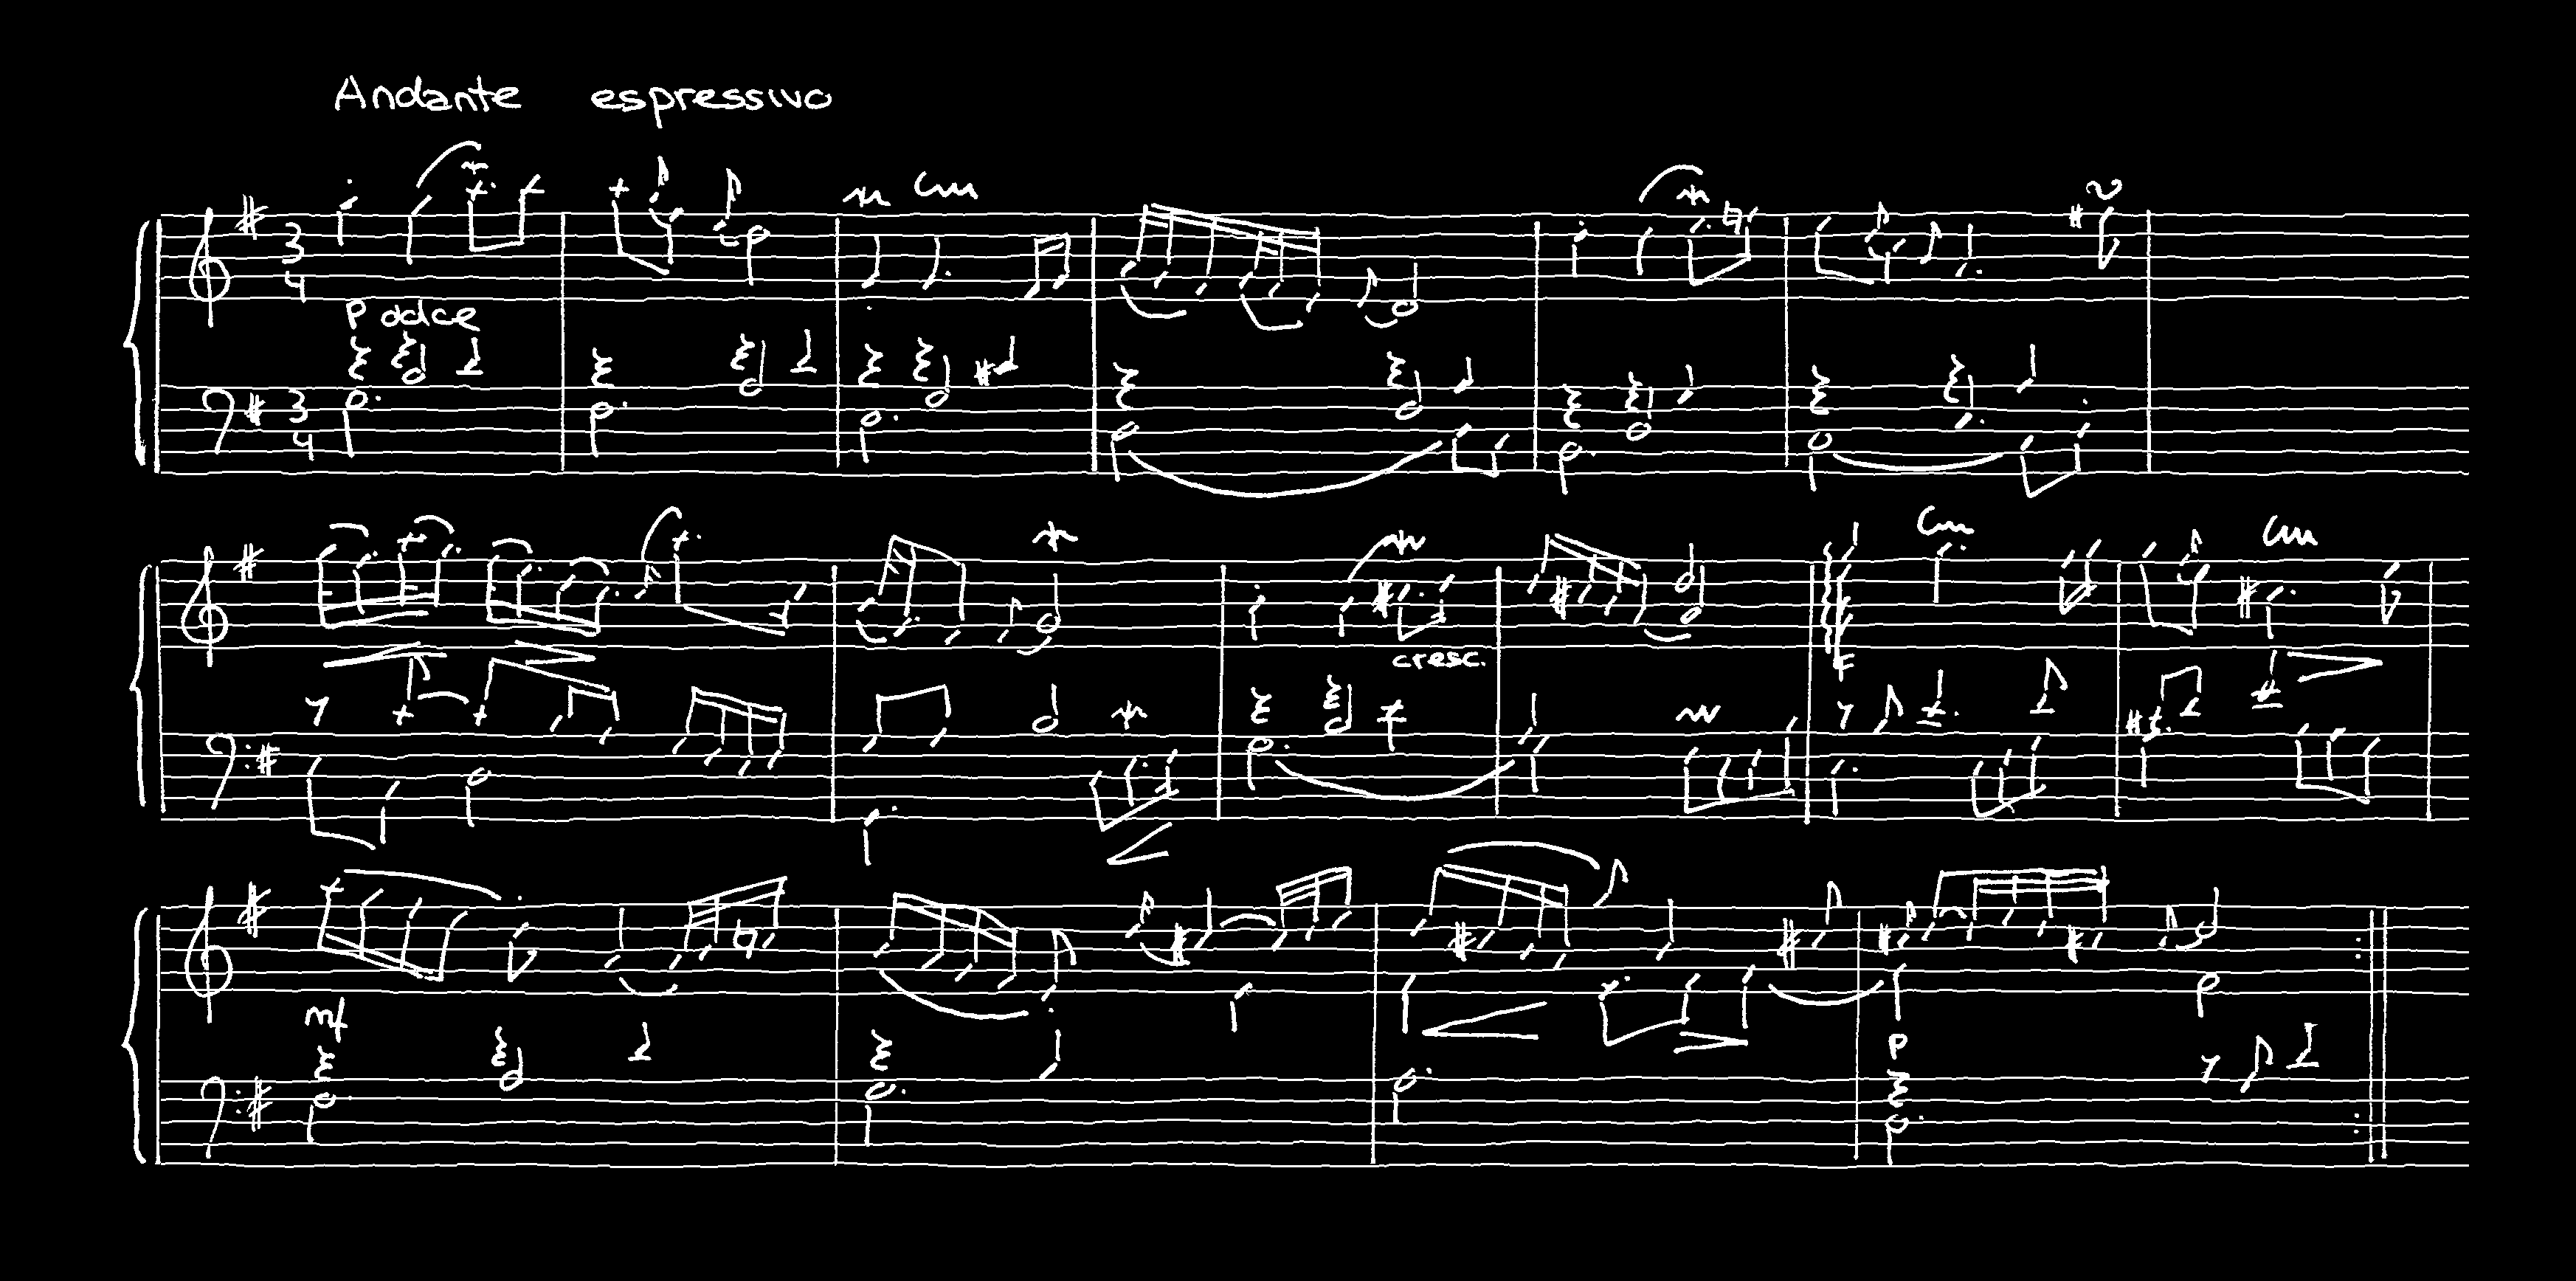 Andante espressivo
3 4
P dolce
3 4
cresc.
F
mf
P